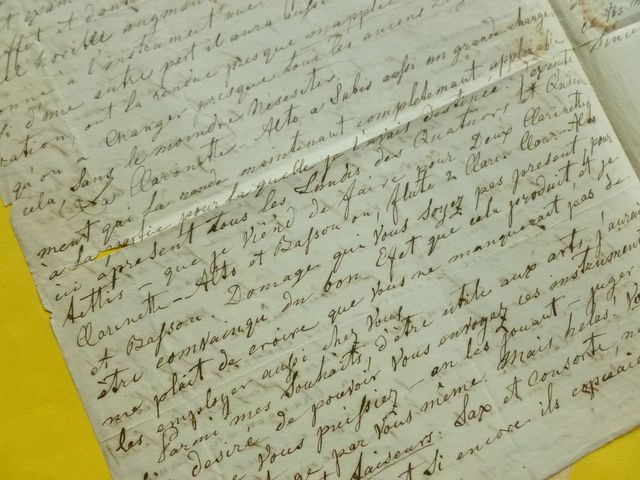 et exam
effet et dans
le horrible augmen
à l'instrument une
Si d'une autre part il aura aussi
ration, ont la rendue presque inapplic
qu'on a Changer presque tous les anciens
cela, Sans le moindre Nécessités.
La Clarinette-Alto a Subis aussi un grand change
ment qui la rende maintenant complètement applicable
a la partie pour la quelle je l'avais destinée: j'exécute
ici apresent tous les Lundis des Quatuors et Quin
tettis — que je Viens de faire pour Deux Clarinettes
Clarinette-Alto et Basson ou, flûte 2 Clari: Clari-Alto
et Basson. Domage que Vous Soyez pas present, pour
être convainqu du bon Efet que cela produit et je
me plait de croire que Vous ne manquerait pas de
les employer aussi chez Vous.
Parmi mes Souhaits, d'être utile aux arts, j'aurais
desiré de pouvoir Vous envoyez ces instruments
Vous puissiez — en les jouant — juger
par Vous même. Mais helas! Vo
faiseurs: Sax et consorte, n
Si encore ils